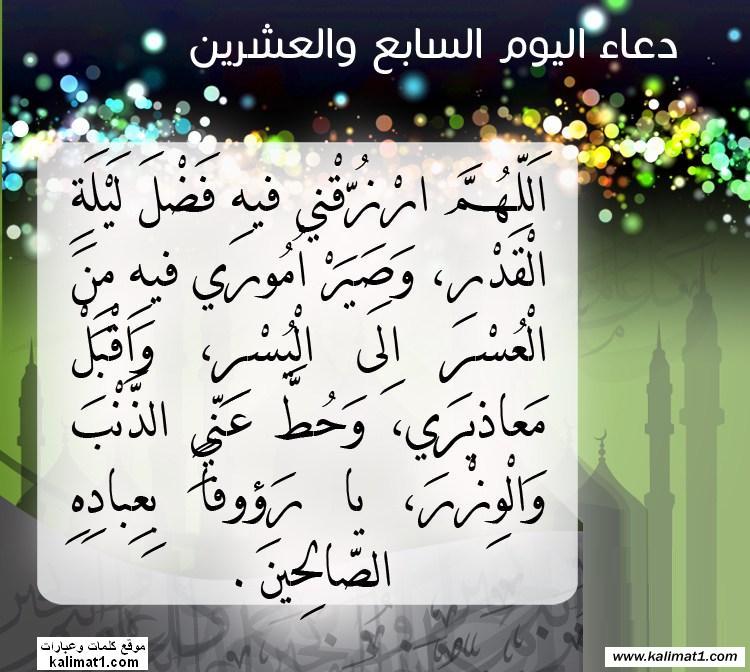 دعاء اليوم السابع والعشرين
اَللّهُمَّ ارْزُقْني فيهِ فَضْلَ لَيْلَةِ
الْقَدْرِ، وَصَيِّرْ اُمُوري فيهِ مِنَ
الْعُسْرِ اِلَى الْيُسْرِ، وَاقْبَلْ
مَعاذيري، وَحُطَّ عَنّيِ الذَّنْبَ
وَالْوِزْرَ، يا رَؤوفاً بِعِبادِهِ
الصّالِحينَ .
موقع كلمات وعبارات
kalimat1.com
www.kalimat1.com